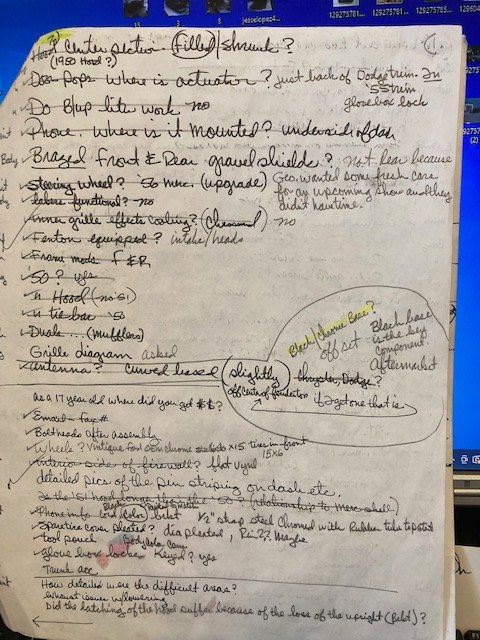 jesselopez4...
129275781...
129275781...
129275785...
Hood Center section. (Filled)/shrunk?
(1950 Hood?)
Door Pops where is actuator? just back of Dodge trim. In
'55 trim
glovebox lock
Do B/up lite work no
Phone. Where is it Mounted? underside of dash
Brazed Front & Rear gravel shields? not Rear because
Geo. wanted some fresh cars
for an upcoming show and they
didn't have time.
steering wheel? '50 merc. (upgrade)
lakers functional? no
inner grille effects cooling? (Chromed) no
Fenton equipped? intake/heads
Frame mods F & R
'50? yes
Hood (no '51)
tie bar '50
Duals... (mufflers)
Grille diagram asked
Black/Chrome Base?
off set
Black base
is the key
component.
Aftermarket
antenna? curved based (slightly) chrysler, Dodge?
off center of fender top
if I get one that is
as a 17 year old where did you get $$?
Email - fax #
Boltheads after assembly
Wheels? Vintique OEM chrome x15 tires in front
15x6
interior side of firewall? flat vynl
detailed pics of the pin striping on dash etc.
Is the '51 hood longer than the '50? (relationship to Merc shell)
Phone info cord (color) but 1/2" strap steel Chromed with Rubber
Sparetire cover pleated? dia pleated, Maybe
tool pouch body color
glove box locks Keyed? yes
Trunk acc
How detailed were the difficult areas?
exhaust issues w/lowering
Did the latching of the hood suffer because of the loss of the upright (Bolt)?